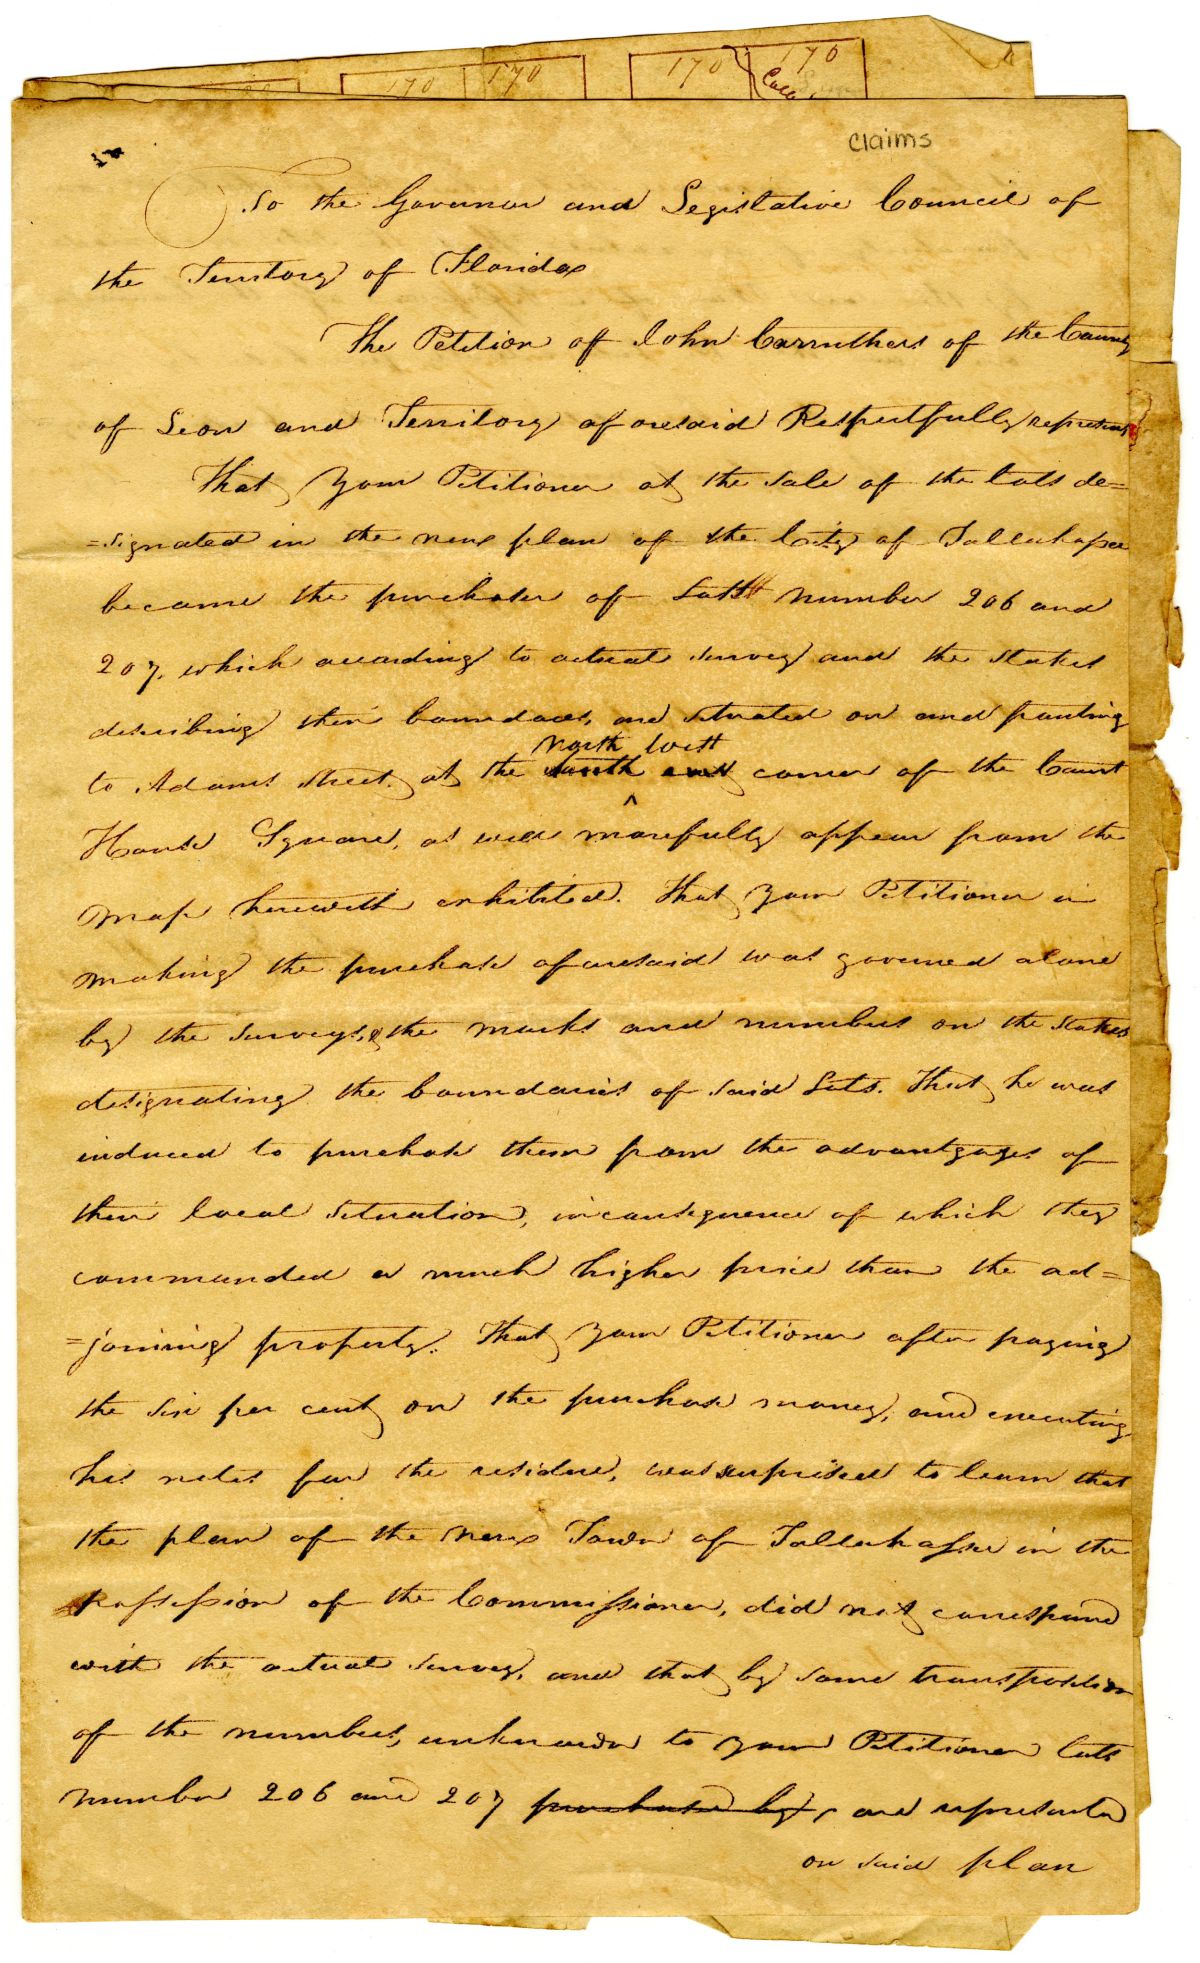 170 170 170 170
claims
To the Governor and Legislative Council of
the Territory of Florida
The Petition of John Carruthers of the County
of Leon and Territory aforesaid Respectfully represents
That your Petitioner at the sale of the lots de=
=signated in the new plan of the City of Tallahassee
became the purchaser of Lots number 206 and
207, which according to actual survey and the stakes
describing their boundaries, are situated on and fronting
north West
to Adams street at the south east corner of the Court
House Square, as will morefully appear from the
map herewith exhibited. That your Petitioner in
making the purchase aforesaid was governed alone
by the surveys, & the marks and numbers on the stakes
designating the boundaries of said Lots. That he was
induced to purchase them from the advantgages of
their local situation, in consequence of which they
commanded a much higher price than the ad=
=joining property. That your Petitioner after paying
the six per cent on the purchase money, and executing
his notes for the residue, was surprised to learn that
the plan of the new Town of Tallahassee in the
possession of the Commissioner, did not correspond
with the actual survey, and that by some transposition
of the numbers, unknown to your Petitioner lots
number 206 and 207 purchased by, are represented
on said plan